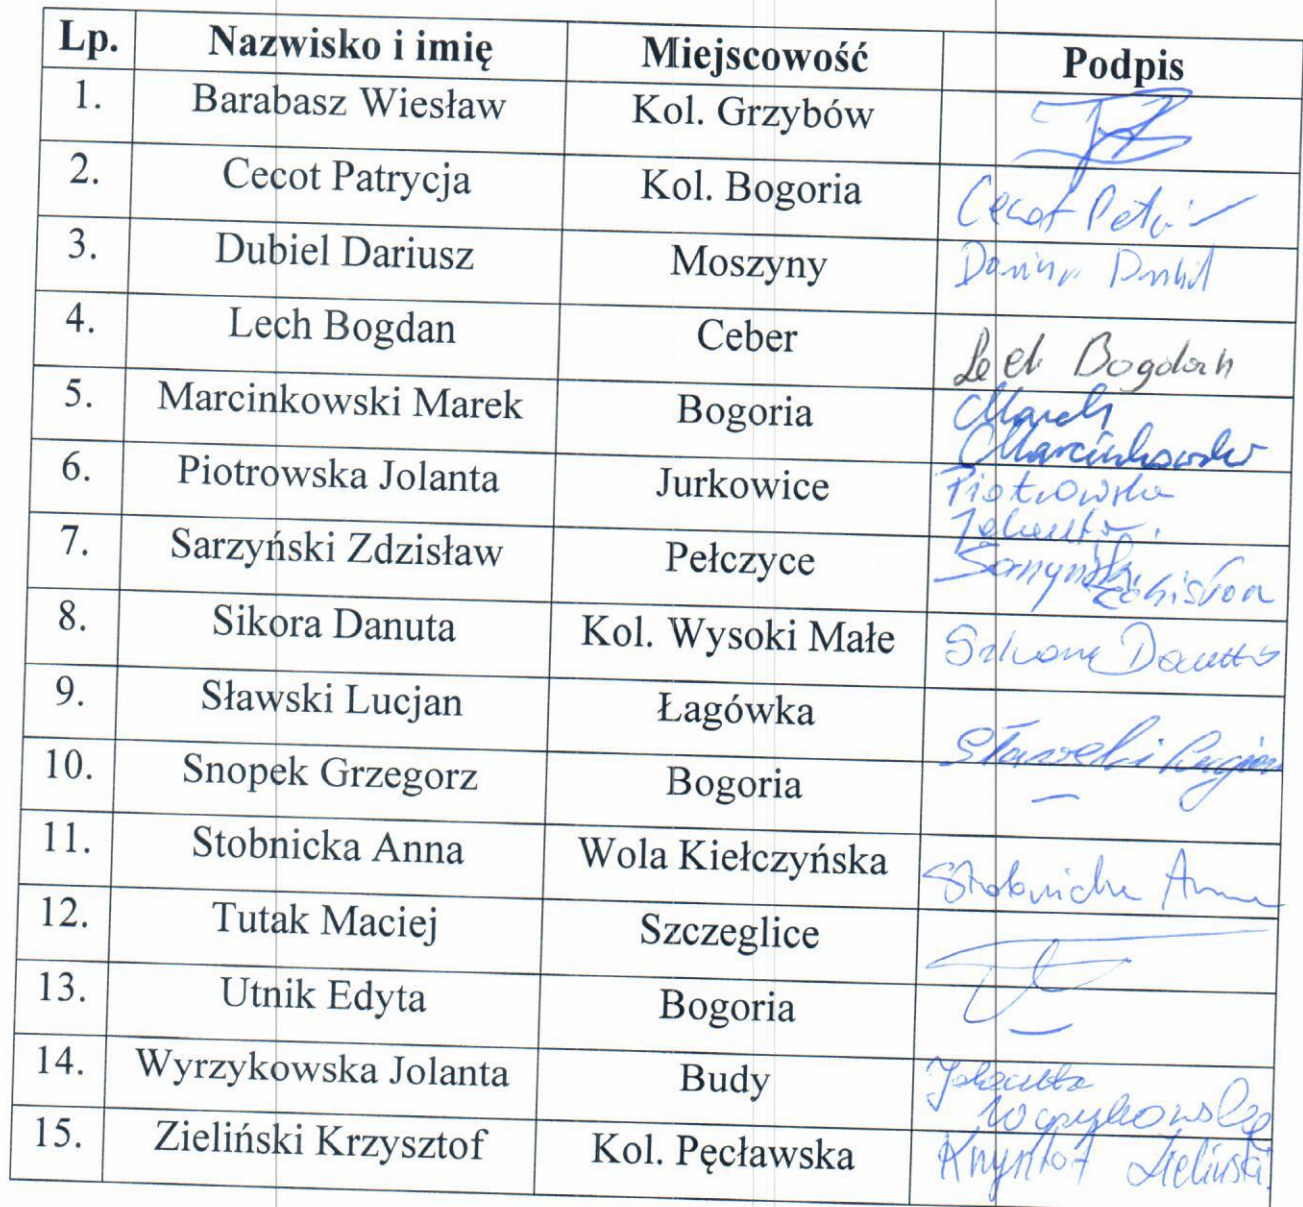 Lp. Nazwisko i imię Miejscowość Podpis
1. Barabasz Wiesław Kol. Grzybów
2. Cecot Patrycja Kol. Bogoria Cecot
3. Dubiel Dariusz Moszyny
4. Lech Bogdan Ceber Lech Bogdan
5. Marcinkowski Marek Bogoria Marek
Marcinkowski
6. Piotrowska Jolanta Jurkowice Piotrowska
Jolanta
7. Sarzyński Zdzisław Pełczyce
8. Sikora Danuta Kol. Wysoki Małe Sikora Danuta
9. Sławski Lucjan Łagówka
10. Snopek Grzegorz Bogoria —
11. Stobnicka Anna Wola Kiełczyńska Stobnicka Anna
12. Tutak Maciej Szczeglice
13. Utnik Edyta Bogoria —
14. Wyrzykowska Jolanta Budy Jolanta
Wyrzykowska
15. Zieliński Krzysztof Kol. Pęcławska Krzysztof Zieliński